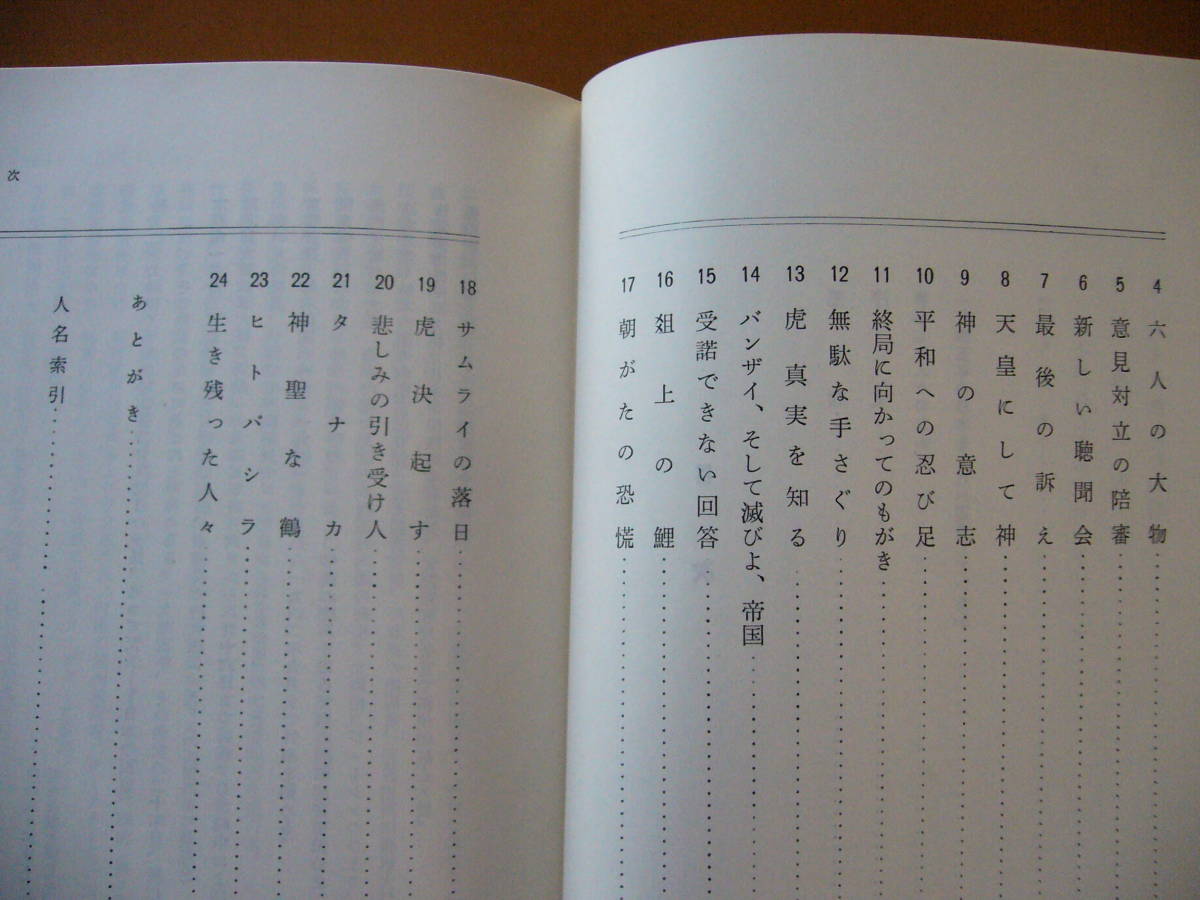 4 六人の大物
5 意見対立の陪審
6 新しい聴聞会
7 最後の訴え
8 天皇にして神
9 神の意志
10 平和への忍び足
11 終局に向かってのもがき
12 無駄な手さぐり
13 虎真実を知る
14 バンザイ、そして滅びよ、帝国
15 受諾できない回答
16 爼上の鯉
17 朝がたの恐慌
18 サムライの落日
19 虎決起す
20 悲しみの引き受け人
21 タナカ
22 神聖な鶴
23 ヒトバシラ
24 生き残った人々
あとがき
人名索引
次